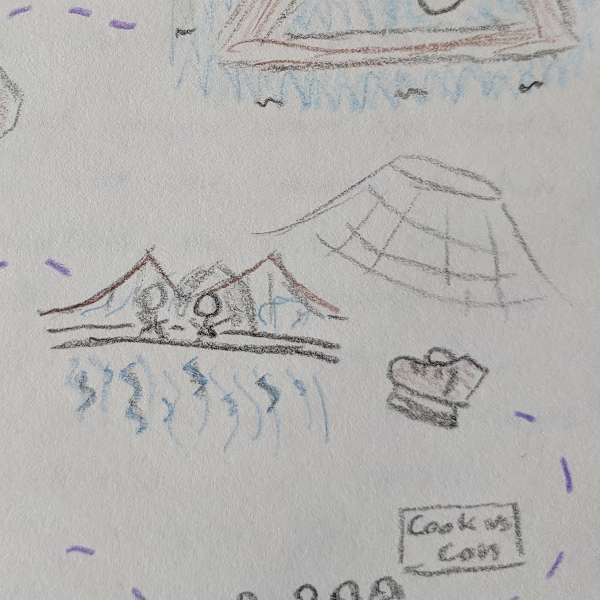 Cook vs
Con